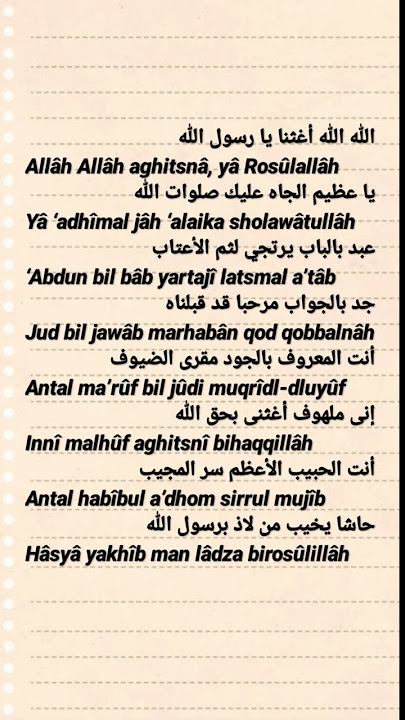 الله الله أغثنا يا رسول الله
Allâh Allâh aghitsnâ, yâ Rosûlallâh
يا عظيم الجاه عليك صلوات الله
Yâ ‘adhîmal jâh ‘alaika sholawâtullâh
عبد بالباب يرتجي لثم الأعتاب
‘Abdun bil bâb yartajî latsmal a’tâb
جد بالجواب مرحبا قد قبلناه
Jud bil jawâb marhabân qod qobbalnâh
أنت المعروف بالجود مقرى الضيوف
Antal ma’rûf bil jûdi muqrîdl-dluyûf
إنى ملهوف أغثنى بحق الله
Innî malhûf aghitsnî bihaqqillâh
أنت الحبيب الأعظم سر المجيب
Antal habîbul a’dhom sirrul mujîb
حاشا يخيب من لاذ برسول الله
Hâsyâ yakhîb man lâdza birosûlillâh